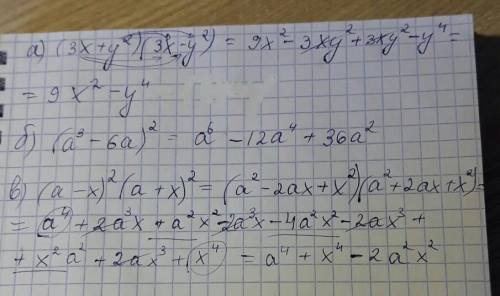 а) (3x+y²)(3x-y²) = 9x²-3xy²+3xy²-y⁴=
= 9x²-y⁴
б) (a³-6a)² = a⁶-12a⁴+36a²
в) (a-x)²(a+x)² = (a²-2ax+x²)(a²+2ax+x²)=
= a⁴+2a³x+a²x²-2a³x-4a²x²-2ax³+
+x²a²+2ax³+x⁴ = a⁴+x⁴-2a²x²